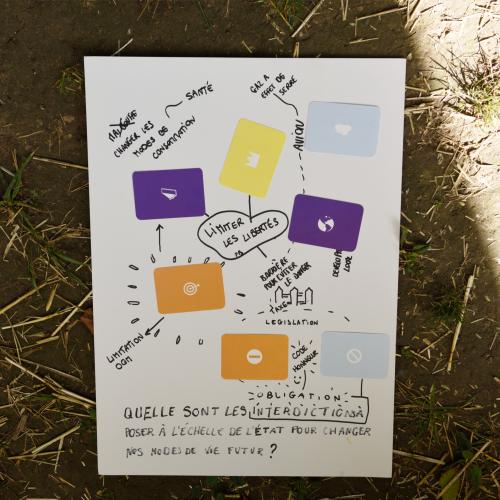 SANTÉ
GAZ A
EFFET DE
SERRE
CHANGER LES
MODES DE
CONSOMMATION
AVION
LIMITER
LES LIBERTÉS
BARRIÈRE
POUR ÉVITER
LE DANGER
LOCAL
TAXE
LEGISLATION
LIMITATION
OGM
CODE
HONNEUR
OBLIGATION
QUELLE SONT LES INTERDICTIONS À
POSER À L'ÉCHELLE DE L'ÉTAT POUR CHANGER
NOS MODES DE VIE FUTUR ?